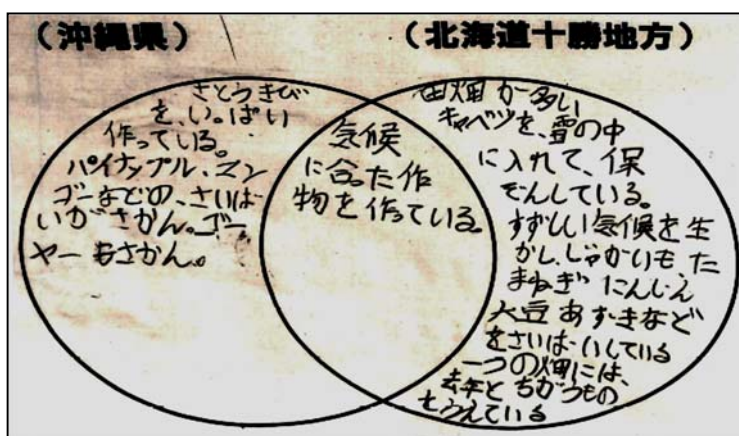 （沖縄県）
（北海道十勝地方）
さとうきび
を、いっぱい
作っている。
パイナップル、マン
ゴーなどの、さいば
いがさかん。ゴー
ヤーもさかん。
気候
に合った作
物を作っている。
田畑が多い
キャベツを、雪の中
に入れて、保
ぞんしている。
すずしい気候を生
かし、じゃがいも、た
まねぎ にんじん
大豆 あずきなど
をさいばいしている
一つの畑には、
去年とちがうもの
をうえている